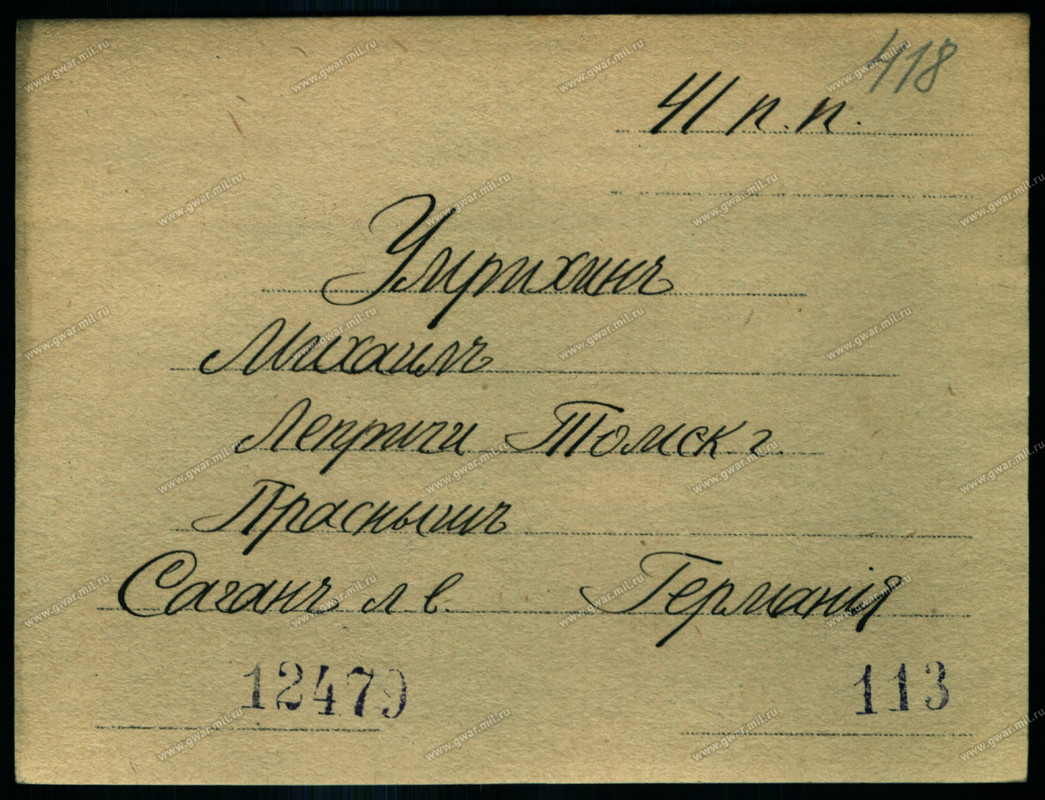 418
41 п. п.
Умрихинъ
Михаилъ
Лепричи Томск. г.
Праснышъ
Саганъ л в. Германія
12479 113
www.gwar.mil.ru